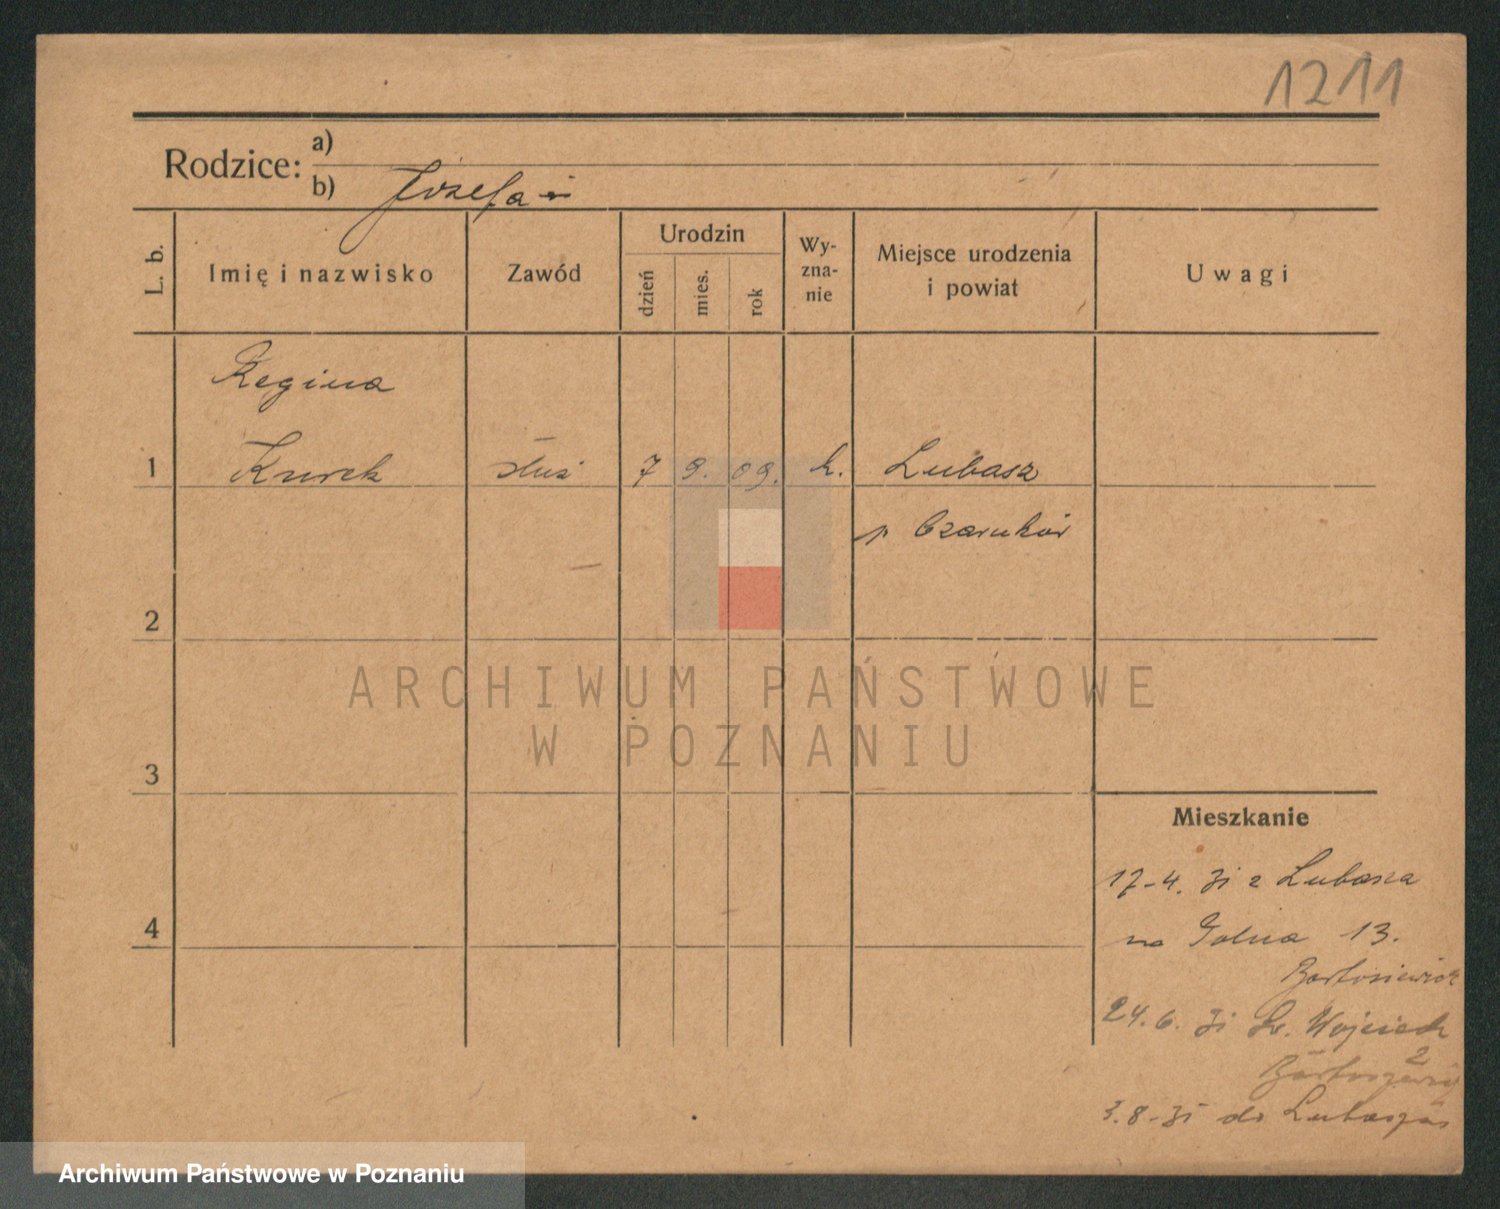 1211
Rodzice:
a)
b) Józefa
L. b.
Imię i nazwisko
Zawód
Urodzin
dzień
mies.
rok
Wy-
zna-
nie
Miejsce urodzenia
i powiat
Uwagi
Regina
1 Kurek służ 7 9. 09. k. Lubasz
p Czarnków
2
3
4
ARCHIWUM PAŃSTWOWE
W POZNANIU
Mieszkanie
17-4. 31 z Lubasza
na 13.
24.6. 31 Św. Wojciech
2
3.8-31 do
Archiwum Państwowe w Poznaniu